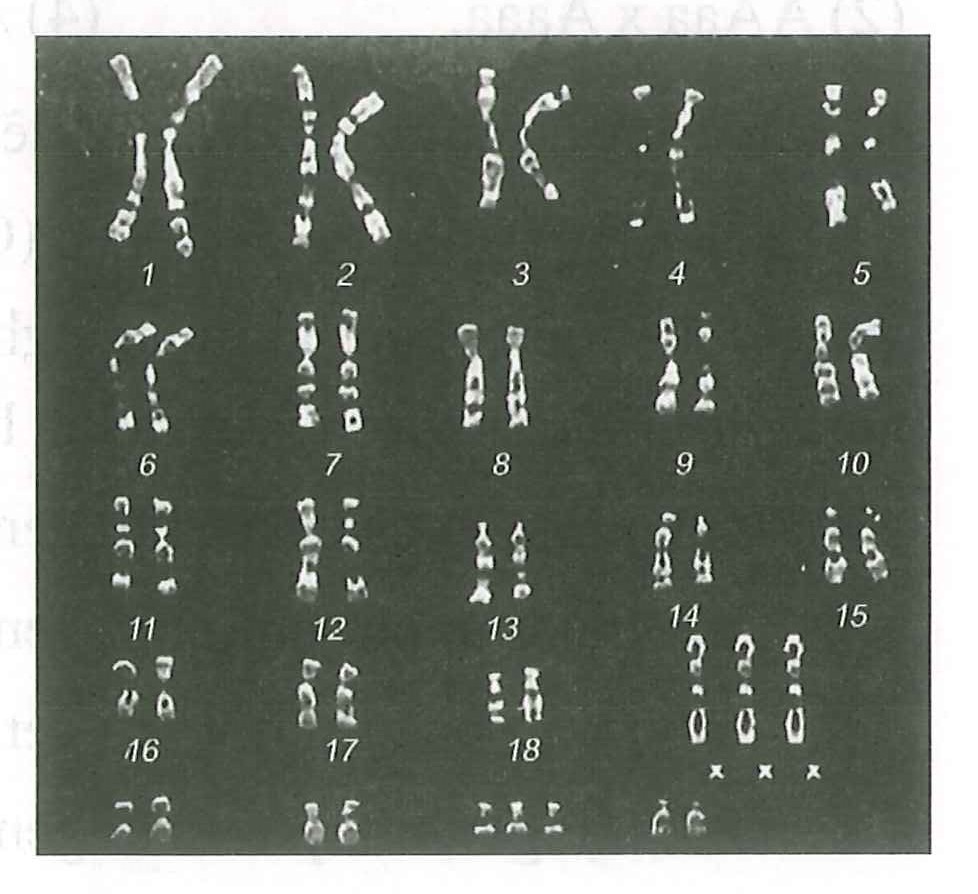 (2) AAaa x Aaaa.
(4)
1 2 3 4 5
6 7 8 9 10
11 12 13 14 15
16 17 18
x x x